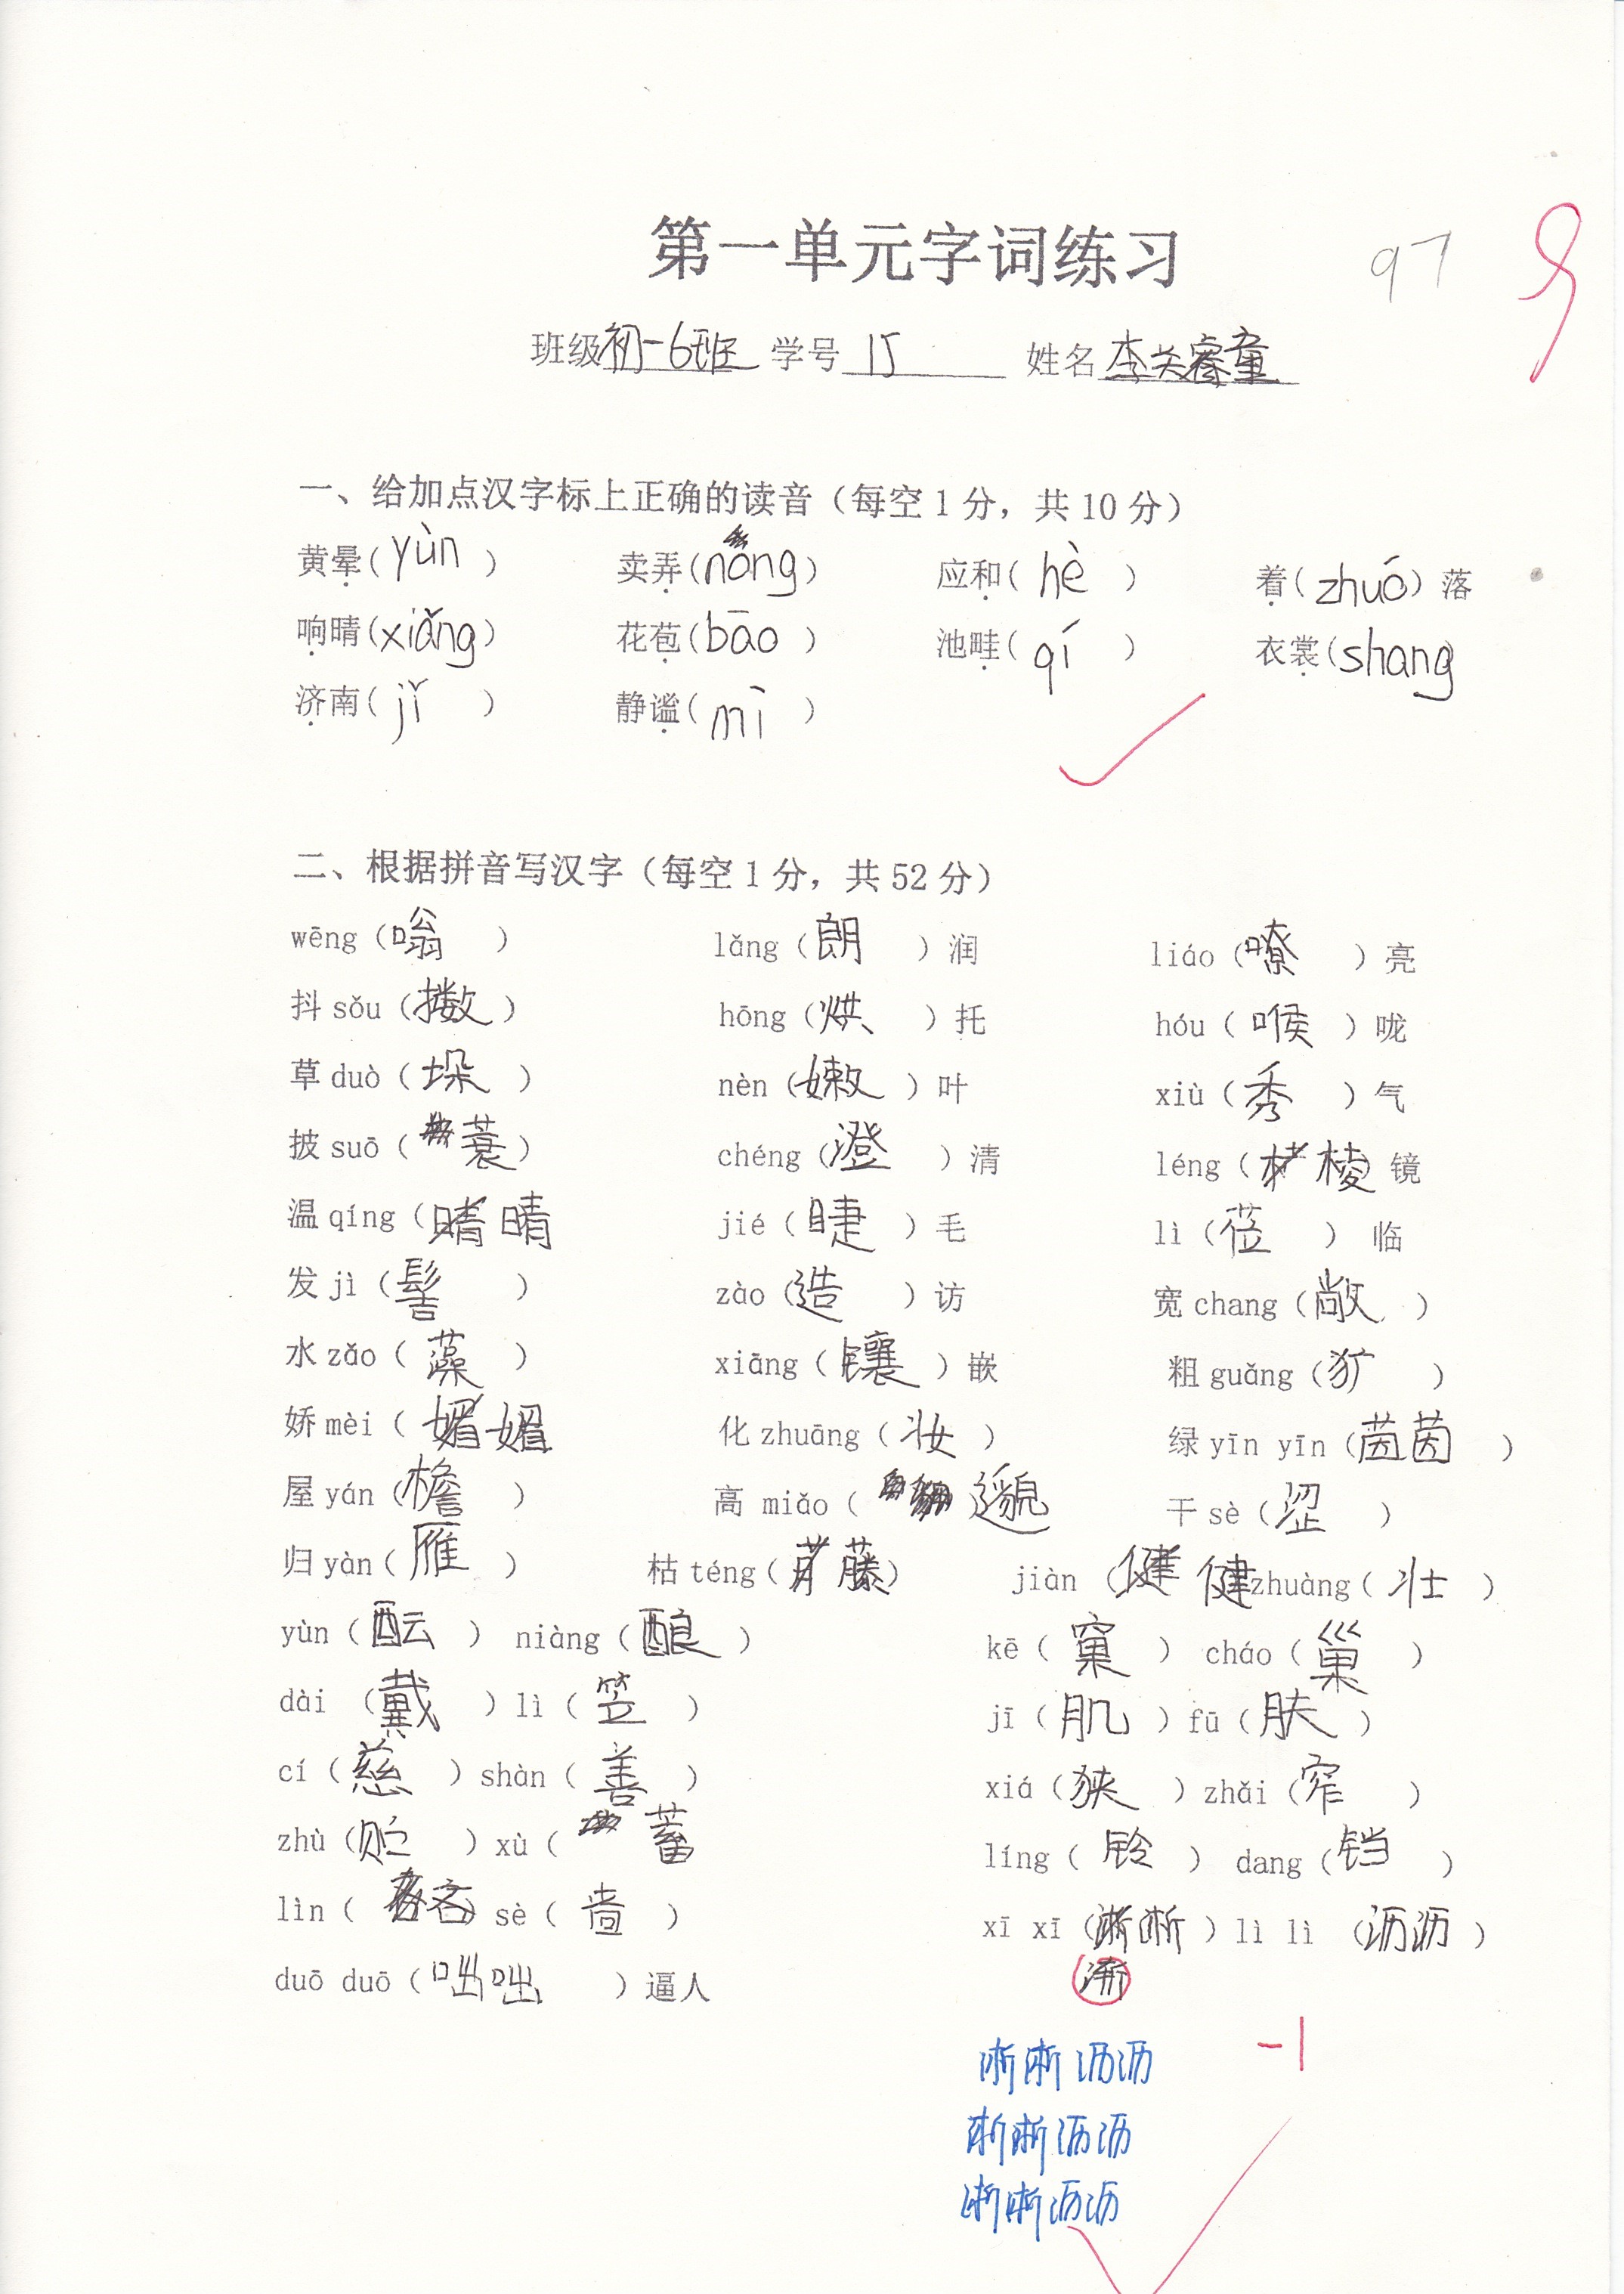 第一单元字词练习 97
班级初一6班 学号 15 姓名李关睿童
一、给加点汉字标上正确的读音（每空1分，共10分）
黄晕(yùn) 卖弄(nong) 应和(hè) 着(zhuó)落
响晴(xiǎng) 花苞(bāo) 池畦(qí) 衣裳(shang)
济南(jǐ) 静谧(mì)
二、根据拼音写汉字（每空1分，共52分）
wēng（嗡） lǎng（朗）润 liáo（嘹）亮
抖sǒu（擞） hōng（烘）托 hóu（喉）咙
草duò（垛） nèn（嫩）叶 xiù（秀）气
披suō（蓑） chéng（澄）清 léng（棱）镜
温qíng（晴 jié（睫）毛 lì（莅）临
发jì（髻） zào（造）访 宽chang（敞）
水zǎo（藻） xiāng（镶）嵌 粗guǎng（犷）
娇mèi（媚 化zhuāng（妆） 绿yīn yīn（茵茵）
屋yán（檐） 高 miǎo（邈 干sè（涩）
归yàn（雁） 枯téng（藤） jiàn（健 zhuàng（壮）
yùn（酝） niàng（酿） kē（窠） cháo（巢）
dài （戴）lì（笠） jī（肌）fū（肤）
cí（慈）shàn（善） xiá（狭）zhǎi（窄）
zhù（贮）xù（蓄 líng（铃） dang（铛）
lìn（吝）sè（啬） xī xī（淅淅）lì lì （沥沥）
duō duō（咄咄）逼人 淅
淅淅沥沥 -1
淅淅沥沥
淅淅沥沥